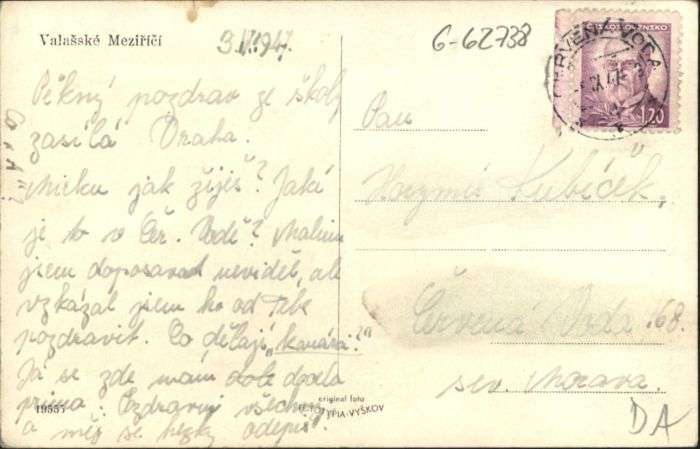 Valašské Meziříčí
3. VII. 1947.
G-62738
ČESKOSLOVENSKO
ČERVENÁ VODA
1.20
Pěkný pozdrav ze školy
zasílá Draha.
Mirku jak žiješ? Jaké
je to v Čer. Vodě?
jsem doposavad neviděl, ale
vzkázal jsem ho od Tebe
pozdravit. Co dělají „kanára“?
Já se zde mám dole docela
prima. Ozdravuj všechny
a měj se hezky odepiš.
Pan
Kubíček,
Červená Voda 68.
sev. Morava.
19555
original foto
TYPIA-VYŠKOV
DA